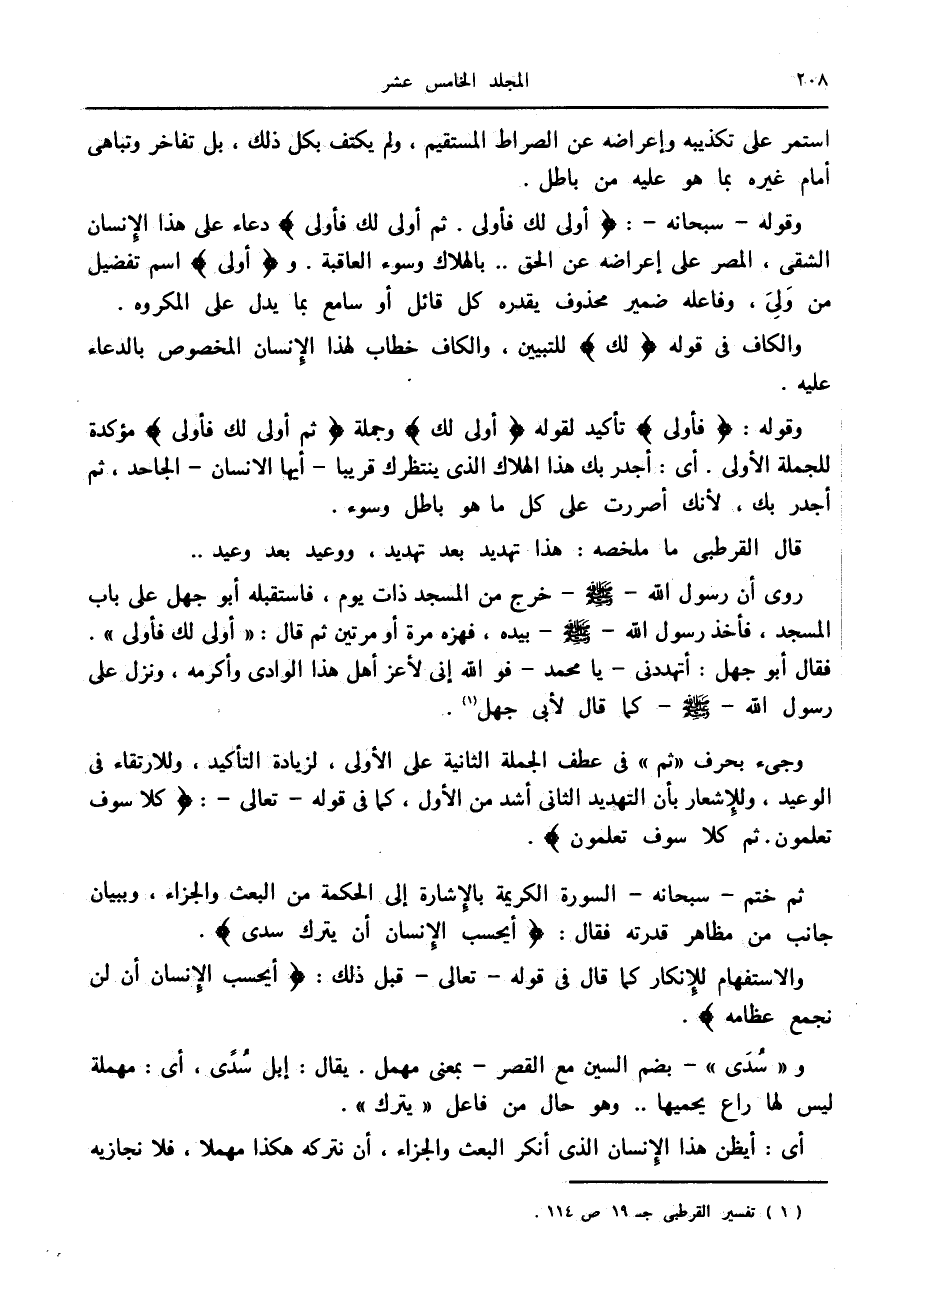 ٢٠٨ المجلد الخامس عشر
استمر على تكذيبه وإعراضه عن الصراط المستقيم ، ولم يكتف بكل ذلك ، بل تفاخر وتباهى
أمام غيره بما هو عليه من باطل .
وقوله – سبحانه – : ﴿ أولى لك فأولى . ثم أولى لك فأولى ﴾ دعاء على هذا الإنسان
الشقى ، المصر على إعراضه عن الحق .. بالهلاك وسوء العاقبة . و ﴿ أولى ﴾ اسم تفضيل
من وَلِىَ ، وفاعله ضمير محذوف يقدره كل قائل أو سامع بما يدل على المكروه .
والكاف فى قوله ﴿ لك ﴾ للتبيين ، والكاف خطاب لهذا الإنسان المخصوص بالدعاء
عليه .
وقوله : ﴿ فأولى ﴾ تأكيد لقوله ﴿ أولى لك ﴾ وجملة ﴿ ثم أولى لك فأولى ﴾ مؤكدة
للجملة الأولى . أى : أجدر بك هذا الهلاك الذى ينتظرك قريبا – أيها الانسان – الجاحد ، ثم
أجدر بك ، لأنك أصررت على كل ما هو باطل وسوء .
قال القرطبى ما ملخصه : هذا تهديد بعد تهديد ، ووعيد بعد وعيد ..
روى أن رسول الله – ﷺ – خرج من المسجد ذات يوم ، فاستقبله أبو جهل على باب
المسجد ، فأخذ رسول الله – ﷺ – بيده ، فهزه مرة أو مرتين ثم قال : « أولى لك فأولى » .
فقال أبو جهل : أتهددنى – يا محمد – فو الله إنى لأعز أهل هذا الوادى وأكرمه ، ونزل على
رسول الله – ﷺ – كما قال لأبى جهل(١) .
وجىء بحرف «ثم » فى عطف الجملة الثانية على الأولى ، لزيادة التأكيد ، وللارتقاء فى
الوعيد ، وللإشعار بأن التهديد الثانى أشد من الأول ، كما فى قوله – تعالى – : ﴿ كلا سوف
تعلمون . ثم كلا سوف تعلمون ﴾ .
ثم ختم – سبحانه – السورة الكريمة بالإشارة إلى الحكمة من البعث والجزاء ، وببيان
جانب من مظاهر قدرته فقال : ﴿ أيحسب الإنسان أن يترك سدى ﴾ .
والاستفهام للإنكار كما قال فى قوله – تعالى – قبل ذلك : ﴿ أيحسب الإنسان أن لن
نجمع عظامه ﴾ .
و « سُدَى » – بضم السين مع القصر – بمعنى مهمل . يقال : إبل سُدًى ، أى : مهملة
ليس لها راع يحميها .. وهو حال من فاعل « يترك » .
أى : أيظن هذا الإنسان الذى أنكر البعث والجزاء ، أن نتركه هكذا مهملا ، فلا نجازيه
( ١ ) تفسير القرطبى جـ ١٩ ص ١١٤ .